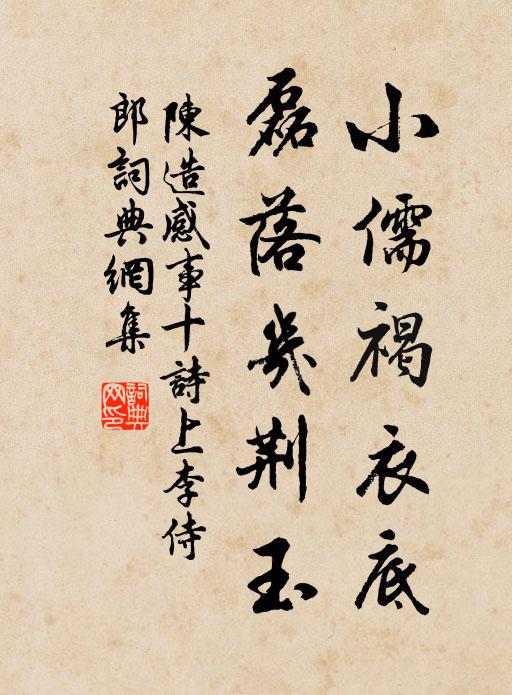 小儒褐衣底
磊落幾荆玉
陳造感事十詩上李侍
郎詞典網集
詞典
网印